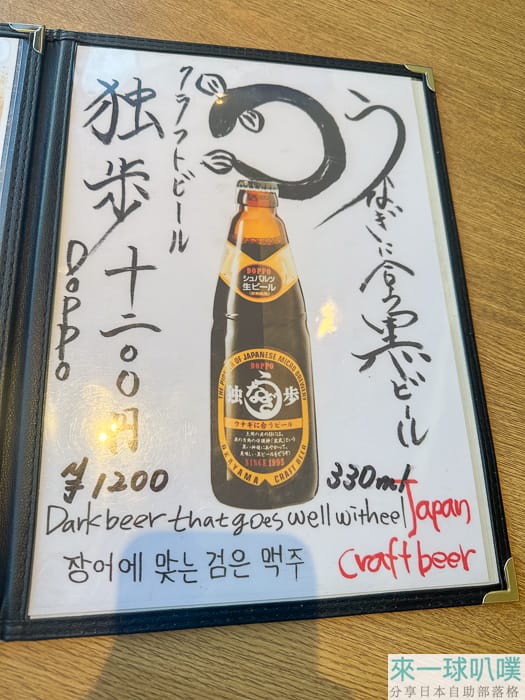 うなぎに合う黒ビール
クラフトビール
独歩 十二〇〇円
DOPPO
¥1200
DOPPO
シュバルツ
生ビール
THE PIONEER OF JAPANESE MICRO BREWERY
DOPPO
独 うなぎ 歩
ウナギに合うビール
SINCE 1995
OKAYAMA CRAFT BEER
330ml
Dark beer that goes well with eel
Japan
Craft beer
장어에 맞는 검은 맥주
來一球叭噗
分享日本自助部落格